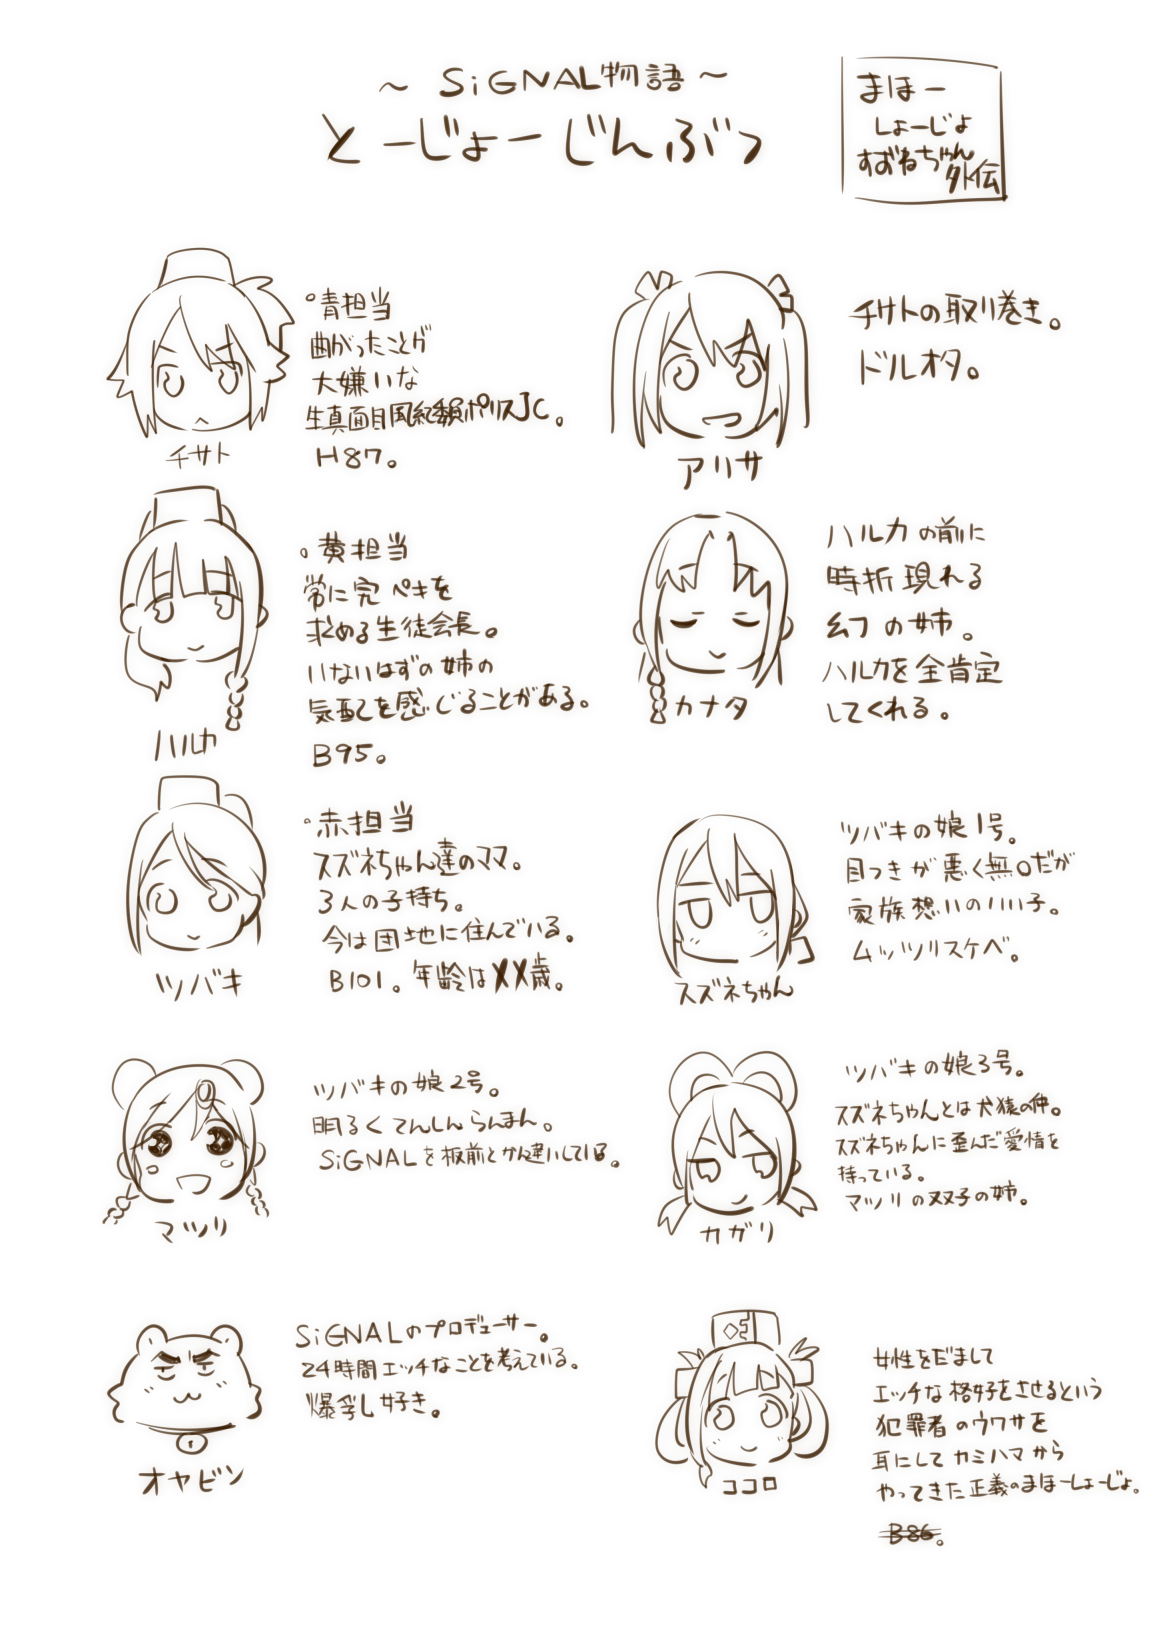 ～ SiGNAL物語 ～
とーじょーじんぶつ
まほー
しょーじょ
すずねちゃん
外伝
。青担当
曲がったことが
大嫌いな
生真面目風紀委員ポリスJC。
H87。
チサト
チサトの取り巻き。
ドルオタ。
アリサ
。黄担当
常に完ペキを
求める生徒会長。
いないはずの姉の
気配を感じることがある。
B95。
ハルカ
ハルカの前に
時折現れる
幻の姉。
ハルカを全肯定
してくれる。
カナタ
。赤担当
スズネちゃん達のママ。
3人の子持ち。
今は団地に住んでいる。
B101。年齢はXX歳。
ツバキ
ツバキの娘1号。
目つきが悪く無口だが
家族想いのいい子。
ムッツリスケベ。
スズネちゃん
ツバキの娘2号。
明るくてんしんらんまん。
SiGNALを板前とかん違いしている。
マツリ
ツバキの娘3号。
スズネちゃんとは犬猿の仲。
スズネちゃんに歪んだ愛情を
持っている。
マツリの双子の姉。
カガリ
SiGNALのプロデューサー。
24時間エッチなことを考えている。
爆乳好き。
オヤビン
女性をだまして
エッチな格好をさせるという
犯罪者のウワサを
耳にしてカミハマから
やってきた正義のまほーしょーじょ。
B86。
ココロ